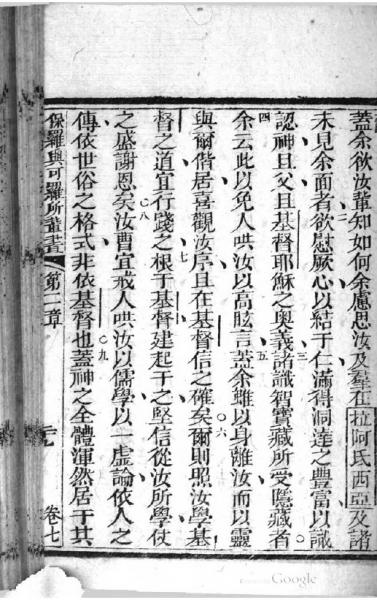 蓋余欲汝輩知如何余慮思汝及羣在拉阿氏西亞及諸
未見余面者欲慰厥心以結于仁滿得洞達之豊富以識
認神且父且基督耶穌之奧義諸識智寶藏所受隱藏者
余云此以免人哄汝以高眩言蓋余雖以身離汝而以靈
與爾偕居喜觀汝序且在基督信之確矣爾則照汝學基
督之道宜行踐之根于基督建起于之堅信從汝所學仗
之盛謝恩矣汝曹宜戒人哄汝以儒學以虛論依人之
傳依世俗之格式非依基督也蓋神之全體渾然居于其
保羅與可羅所輩書 第二章 卷七
二
三
四
五
六
七
八
九
Google